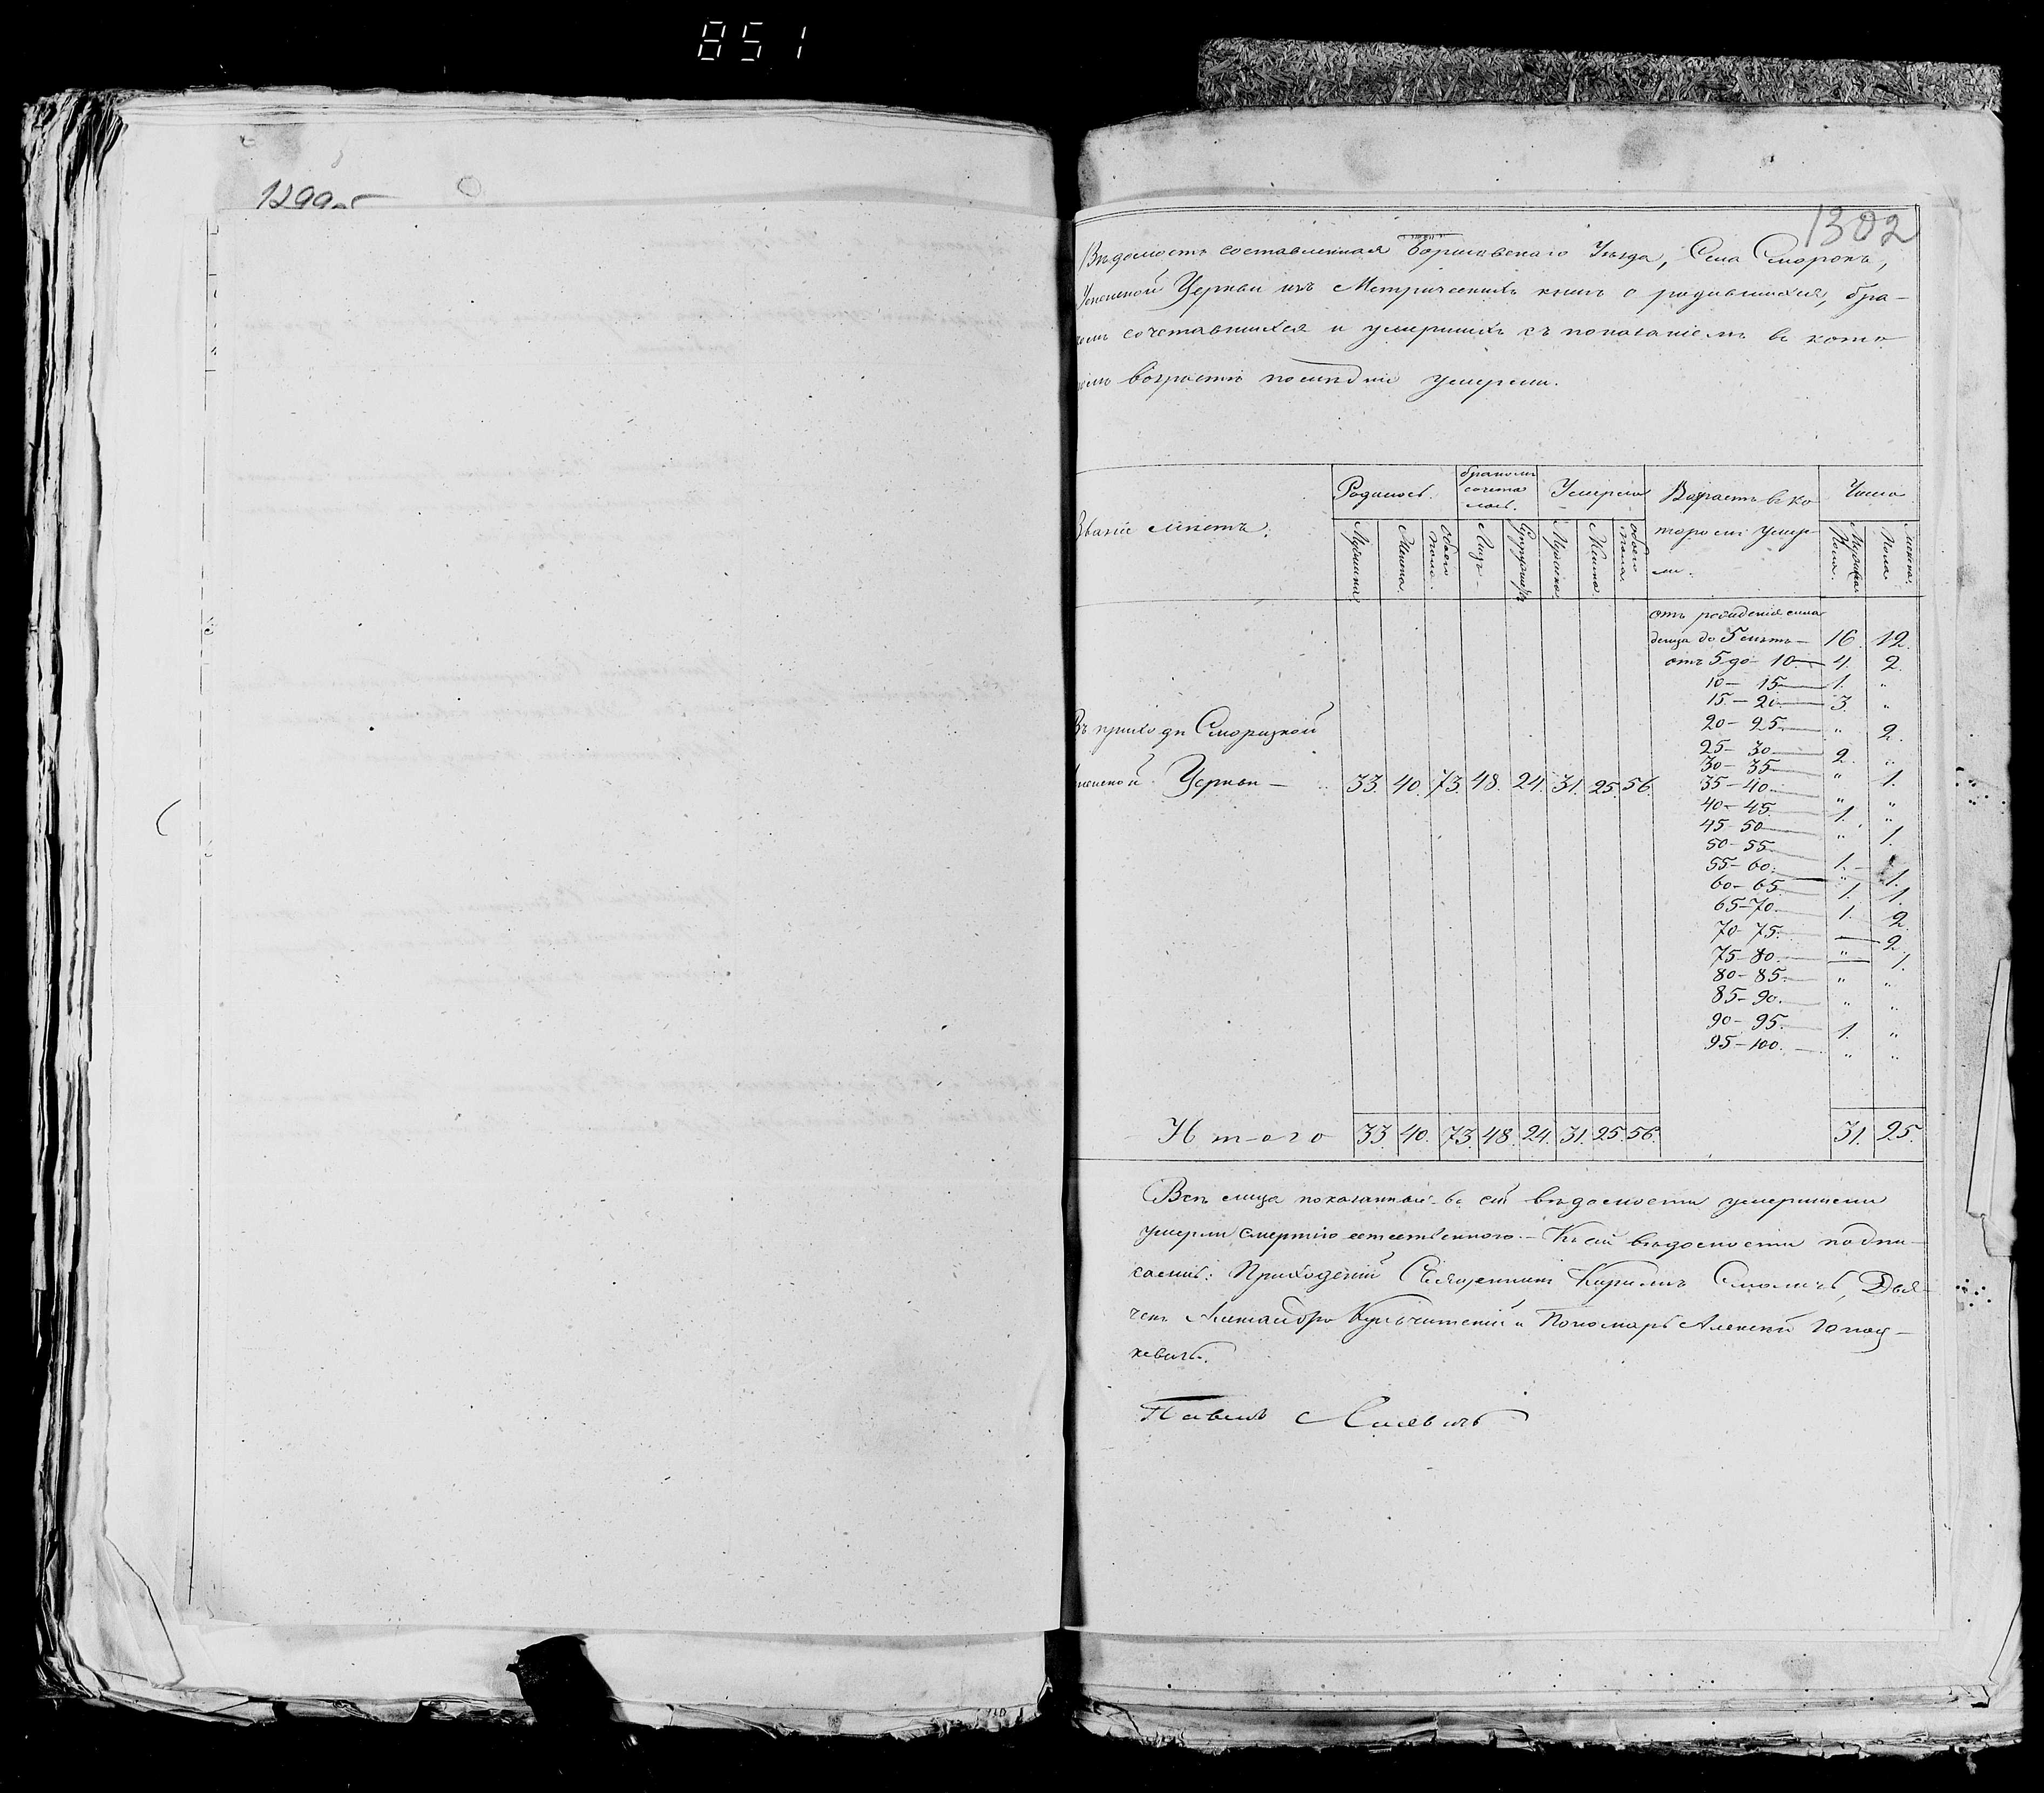 851
1302
Вѣдомость составленная Борисовскаго Уѣзда, Села Сморокъ,
Церкви изъ Метрическихъ книгъ о родившихся, бра-
сочетавшихся и умершихъ съ показаніемъ въ кото
возрастѣ послѣдніе умерли.
Званіе мѣстъ.
Родилось.
Мужеска
Женска.
Обоего пола.
бракомъ сочета лось.
Лицъ
Супружествъ
Умерло
Мужеска
Женска.
обоего пола
Возрастъ въ ко
торомъ умер-
ли.
Число
Мужеска Пола.
женска. Пола
отъ рожденія мла
денца до 5 лѣтъ — 16. 12.
отъ 5 до 10 — 4. 2.
10 — 15 — 1. "
15 — 20 — 3. "
20 — 25 — " 2.
25 — 30 — 2. "
30 — 35 — " 1.
35 — 40 — " "
40 — 45 — 1. "
45 — 50 — " 1.
50 — 55 — 1.
55 — 60 — " 1.
60 — 65 — 1. 1.
65 — 70 — 1. 2.
70 — 75 — 2.
75 — 80 — " 1.
80 — 85 — " "
85 — 90 — " "
90 — 95 — 1. "
95 — 100 — " "
Въ приходѣ Сморкской
Церкви — 33. 40. 73. 48. 24. 31. 25. 56.
Итого 33. 40. 73. 48. 24. 31. 25. 56. 31. 25.
Всѣ лица показанныя въ сей вѣдомости умершими
умерли смертію естественною. — Къ сей вѣдомости подпи-
сались: Приходскій Священникъ Кириллъ Смоличъ, Дья-
чекъ Александръ Кульчицкій и Пономарь Алексѣй
кевичъ.
Павелъ